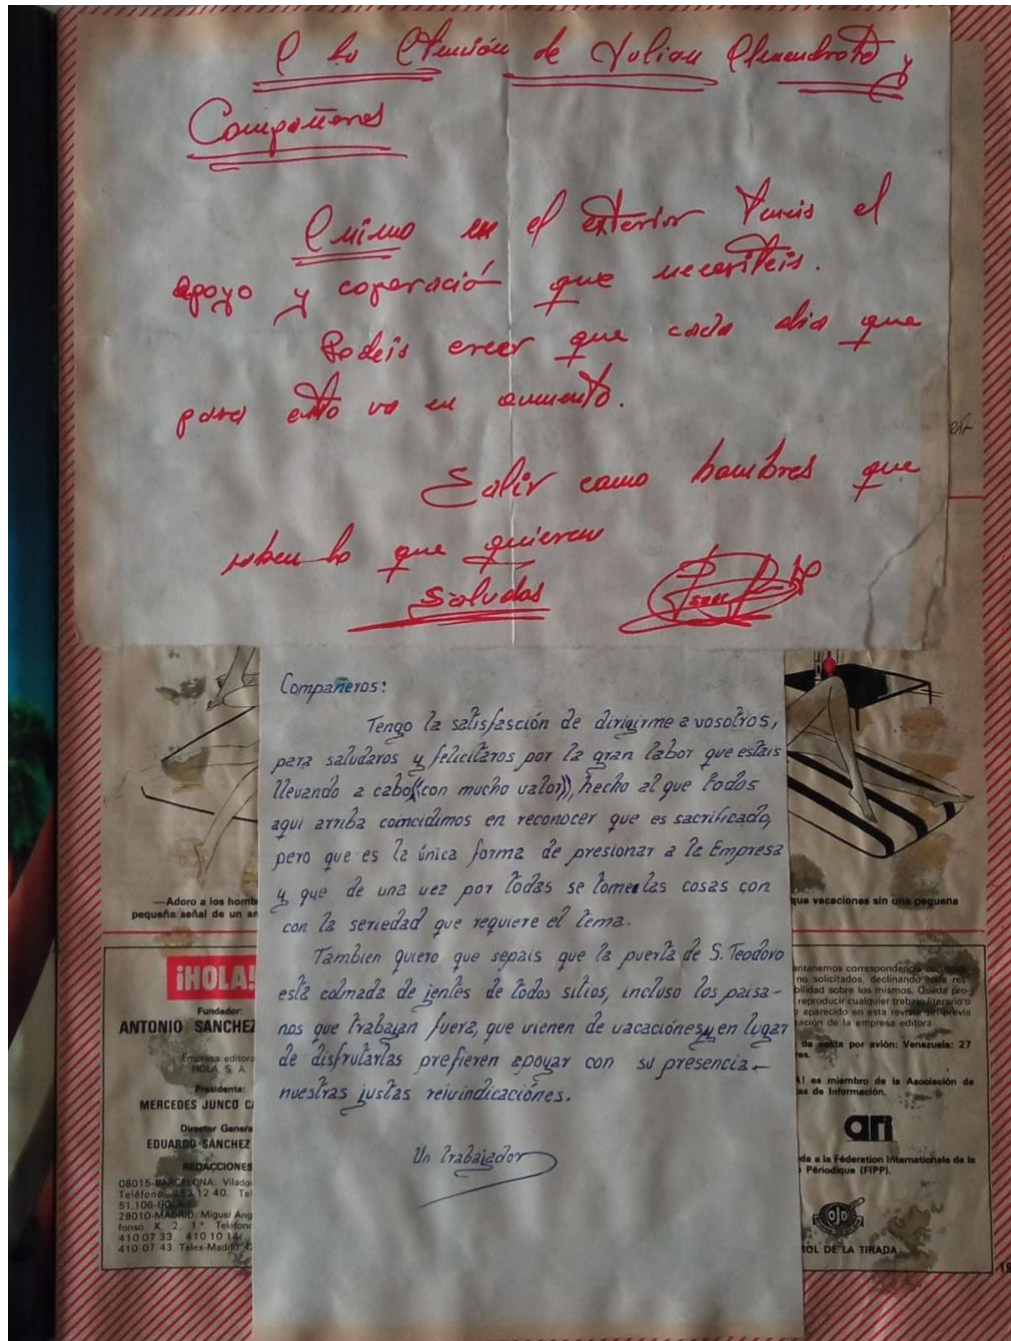 A la Atención de Julian Almendrote y
Compañeros
Animo en el exterior Teneis el
apoyo y coperación que necesiteis.
Podeis creer que cada dia que
pasa esto va en aumento.
Salir como hombres que
saben lo que quieren
Saludos
Compañeros:
Tengo la satisfasción de dirigirme a vosotros,
para saludaros y felicitaros por la gran labor que estais
llevando a cabo((con mucho valor)), hecho al que todos
aqui arriba coincidimos en reconocer que es sacrificado,
pero que es la única forma de presionar a la Empresa
y que de una vez por todas se tomen las cosas con
con la seriedad que requiere el tema.
Tambien quiero que sepais que la puerta de S. Teodoro
está colmada de jentes de todos sitios, incluso los paisa-
nos que trabajan fuera, que vienen de vacaciónes y en lugar
de disfrutarlas prefieren apoyar con su presencia-
nuestras justas reivindicaciónes.
Un trabajador
—Adoro a los homb
pequeña señal de un an
que vacaciones sin una pequeña
¡HOLA!
Fundador:
ANTONIO SANCHEZ
Empresa editora
HOLA S. A.
Presidenta:
MERCEDES JUNCO C
Director Genera
EDUARDO SANCHEZ
REDACCIONES
08015-BARCELONA: Vilado
Teléfono 12 40. Tel
51.106-HOLA
28010-MADRID: Miguel Ang
fonso X, 2, 1.° Teléfono
410 07 33 410 10 14
410 07 43 Telex-Madrid
antenemos correspondencia
no solicitados, declinando res-
bilidad sobre los mismos. Queda pro-
reproducir cualquier trabajo literario o
aparecido en esta revista sin previa
ación de la empresa editora
de venta por avión: Venezuela: 27
res.
A! es miembro de la Asociación de
as de Información.
ari
da a la Féderation Internationale de la
Périodique (FIPP).
OJD
ROL DE LA TIRADA
19